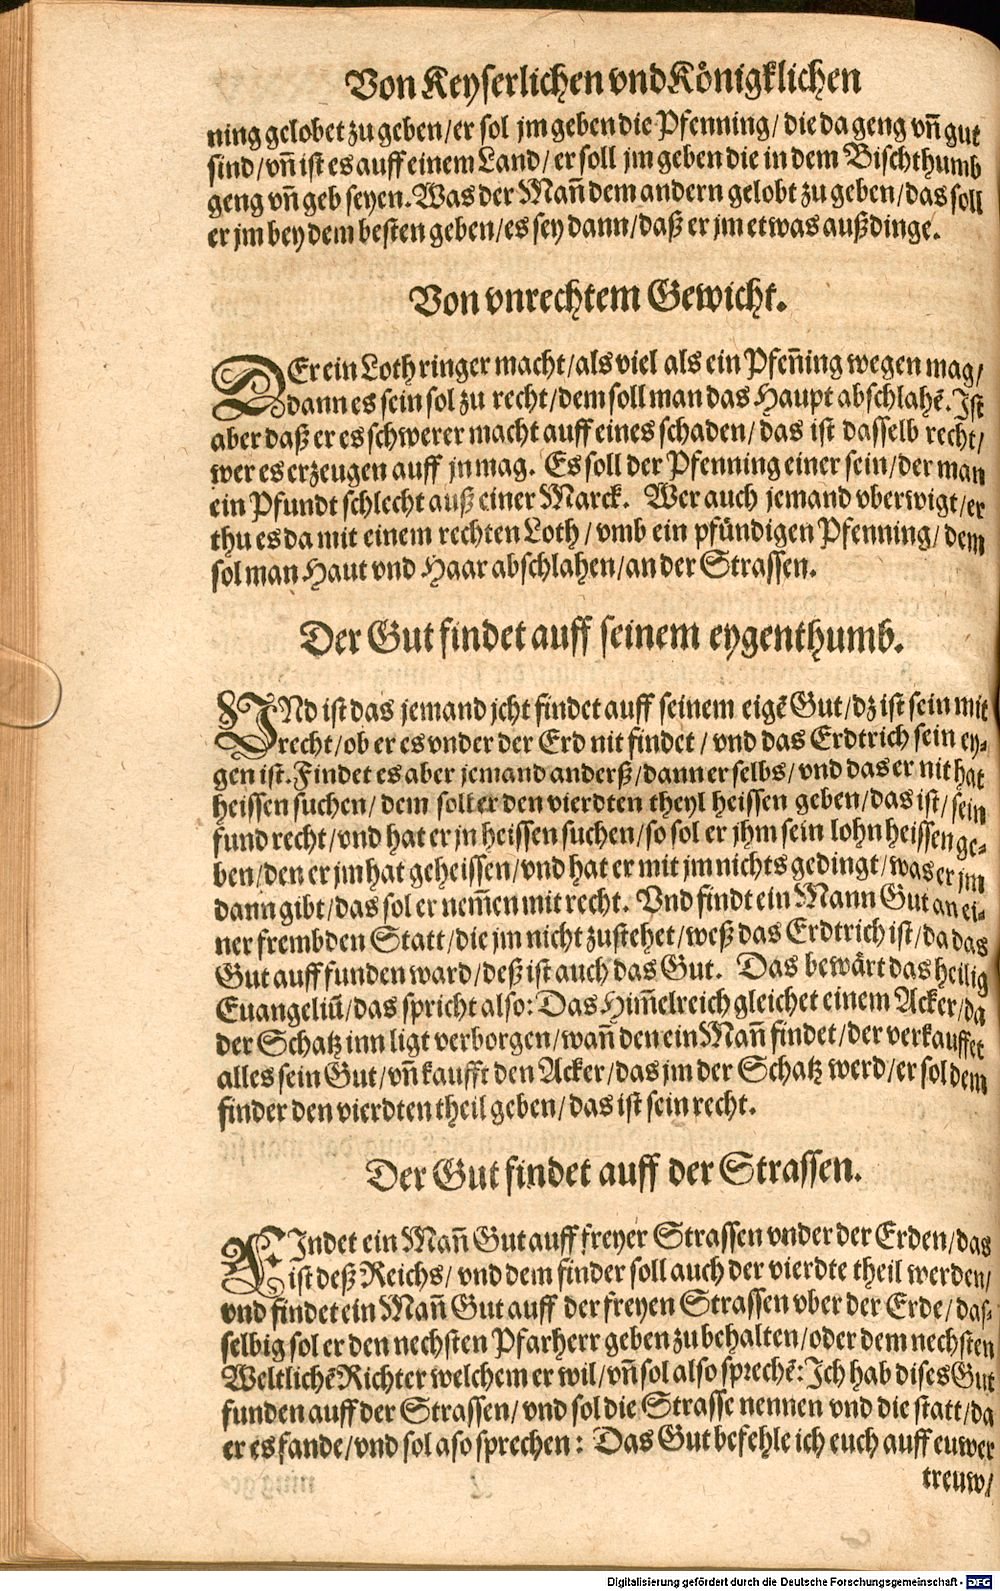 Von Keyserlichen vnd Königklichen
ning gelobet zu geben/er sol jm geben die Pfenning/ die da geng vñ gut
sind/vñ ist es auff einem Land/ er soll jm geben die in dem Bischthumb
geng vñ geb seyen. Was der Mañ dem andern gelobt zu geben/das soll
er jm bey dem besten geben/es sey dann/daß er jm etwas außdinge.
Von vnrechtem Gewicht.
DEr ein Loth ringer macht/als viel als ein Pfeñing wegen mag/
dann es sein sol zu recht/dem soll man das Haupt abschlahẽ. Ist
aber daß er es schwerer macht auff eines schaden/das ist dasselb recht/
wer es erzeugen auff jn mag. Es soll der Pfenning einer sein/der man
ein Pfundt schlecht auß einer Marck. Wer auch jemand vberwigt/er
thu es da mit einem rechten Loth/vmb ein pfündigen Pfenning/dem
sol man Haut vnd Haar abschlahen/an der Strassen.
Der Gut findet auff seinem eygenthumb.
VNd ist das jemand jcht findet auff seinem eigẽ Gut/dz ist sein mit
recht/ob er es vnder der Erd nit findet/ vnd das Erdtrich sein ey-
gen ist. Findet es aber jemand anderß/dann er selbs/vnd das er nit hat
heissen suchen/dem soll er den vierdten theyl heissen geben/das ist/sein
fund recht/vnd hat er jn heissen suchen/so sol er jhm sein lohn heissen ge-
ben/den er jm hat geheissen/vnd hat er mit jm nichts gedingt/was er jm
dann gibt/das sol er nem̃en mit recht. Vnd findt ein Mann Gut an ei-
ner frembden Statt/die jm nicht zustehet/weß das Erdtrich ist/da das
Gut auff funden ward/deß ist auch das Gut. Das bewärt das heilig
Euangeliũ/das spricht also: Das Him̃elreich gleichet einem Acker/da
der Schatz inn ligt verborgen/wañ den ein Mañ findet/der verkauffet
alles sein Gut/vñ kaufft den Acker/das jm der Schatz werd/er sol dem
finder den vierdten theil geben/das ist sein recht.
Der Gut findet auff der Strassen.
FIndet ein Mañ Gut auff freyer Strassen vnder der Erden/das
ist deß Reichs/ vnd dem finder soll auch der vierdte theil werden/
vnd findet ein Mañ Gut auff der freyen Strassen vber der Erde/das-
selbig sol er den nechsten Pfarherr geben zu behalten/oder dem nechsten
Weltlichẽ Richter welchem er wil/vñ sol also sprechẽ: Ich hab dises Gut
funden auff der Strassen/vnd sol die Strasse nennen vnd die statt/da
er es fande/vnd sol aso sprechen: Das Gut befehle ich euch auff euwer
treuw/
Digitalisierung gefördert durch die Deutsche Forschungsgemeinschaft - DFG